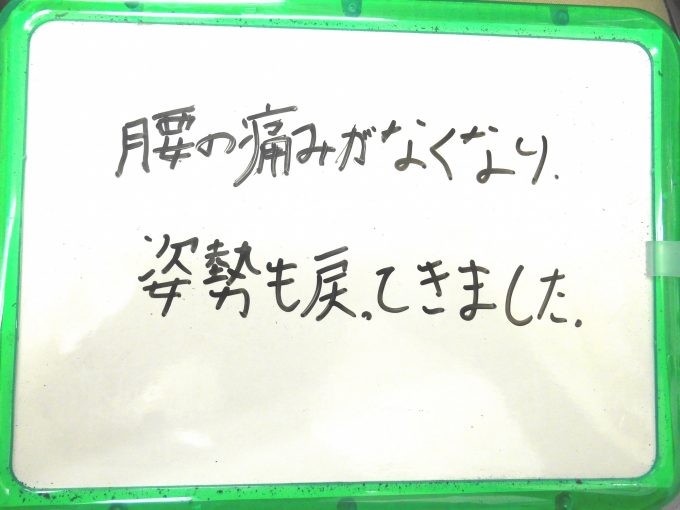 腰の痛みがなくなり.
姿勢も戻ってきました.